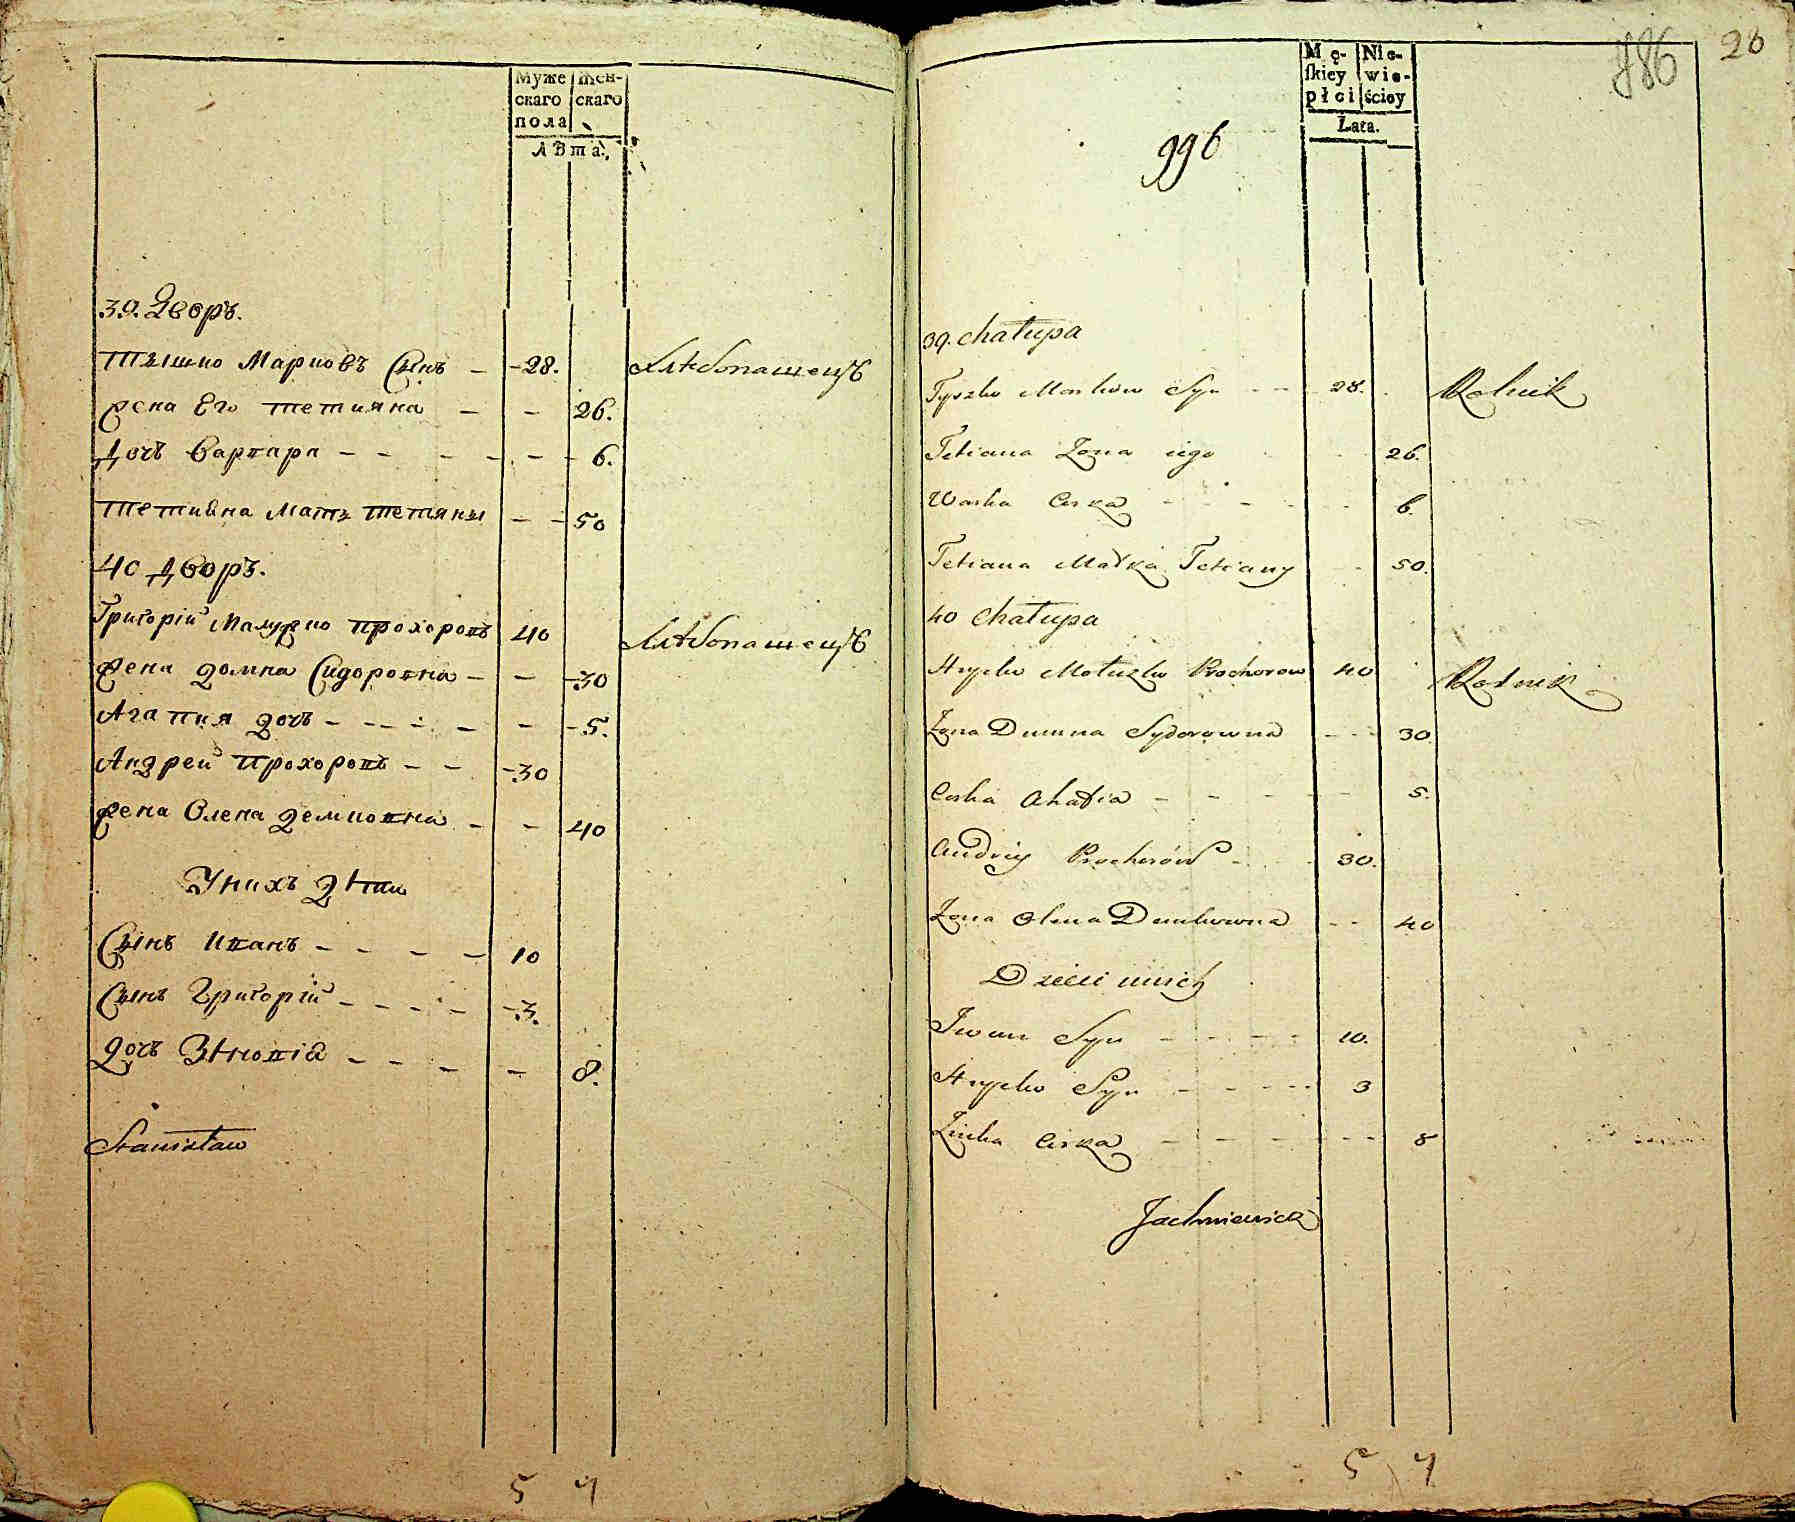 Муже Жен-
скаго скаго
пола
Лѣта.
39. Дворъ.
Тышко Марковъ Сынъ - - 28. Хлѣбопашецъ
Жена Его Тетияна - - 26.
Дочь Варвара - - - - - - 6.
Тетияна Мать Тетяны - - 50
40 Дворъ.
Григорій Прохоровъ 40 Хлѣбопашецъ
Жена Домна Сидоровна - - - 30
Агапия Дочь - - - - - - - 5.
Андрей Прохоровъ - - - 30
Жена Олена Демковна - - 40
У нихъ Дѣти
Сынъ Иванъ - - - - 10
Сынъ Григорій - - - - - 3.
Дочь Зѣновія - - - - - 8.
Stanisław
5 4
Mę- Nie-
skiey wie-
płci ściey
Lata.
996
786
26
39. Chałupa
Tyszko Markow Syn - - - 28. Rolnik
Tetiana Zona iego 26.
Warka Corka - - - - - 6.
Tetiana Matka Tetiany - - 50.
40 Chałupa
Hryćko Prochorow 40 Rolnik
Zona Dumna Sydorowna - - - 30
Corka Ahafia - - - - - 5.
Andriy Prochorów - - 30.
Zona Olena Demkowna - - 40
Dzieci u nich
Iwan Syn - - - - - 10.
Hryćko Syn - - - - - 3
Zinka Corka - - - - - - 8
Jachniewicz
5 4